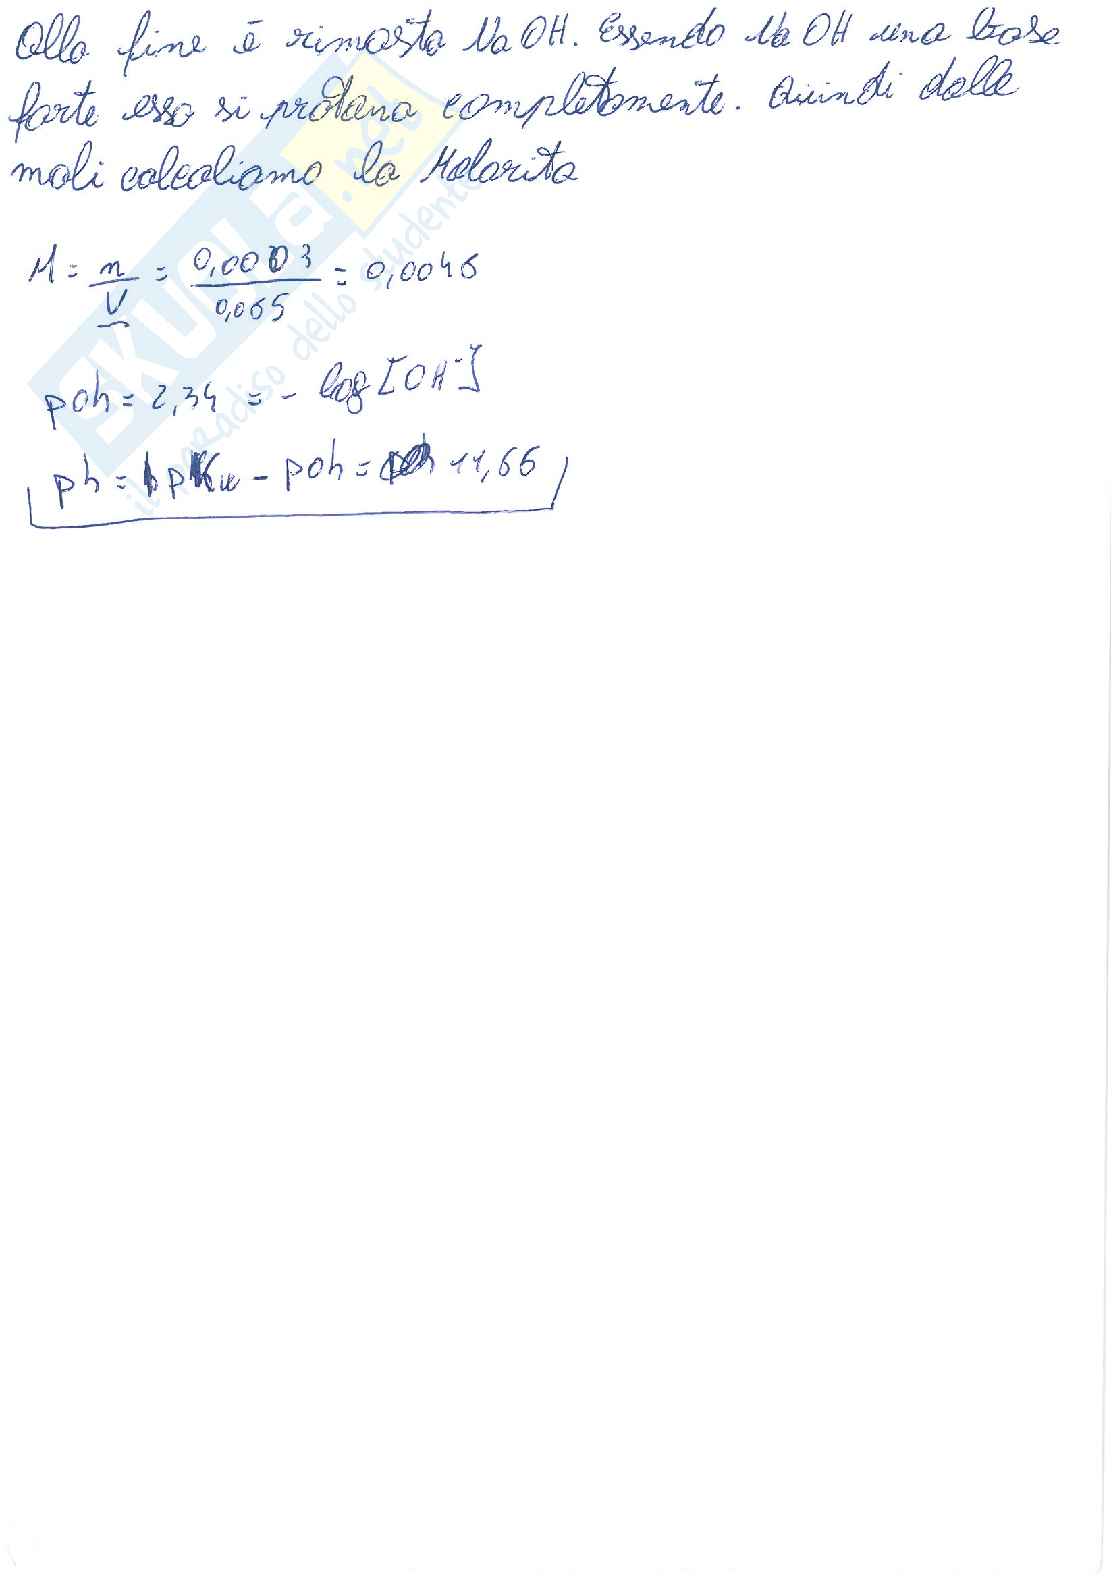 Alla fine è rimasta NaOH. Essendo NaOH una base
forte esso si protona completamente. Quindi dalle
moli calcoliamo la Molarità
M = n/V = 0,0003/0,065 = 0,0046
poh = 2,34 = - log [OH⁻]
ph = pKw - poh = 11,66
SKUOLA.net
il paradiso dello studente